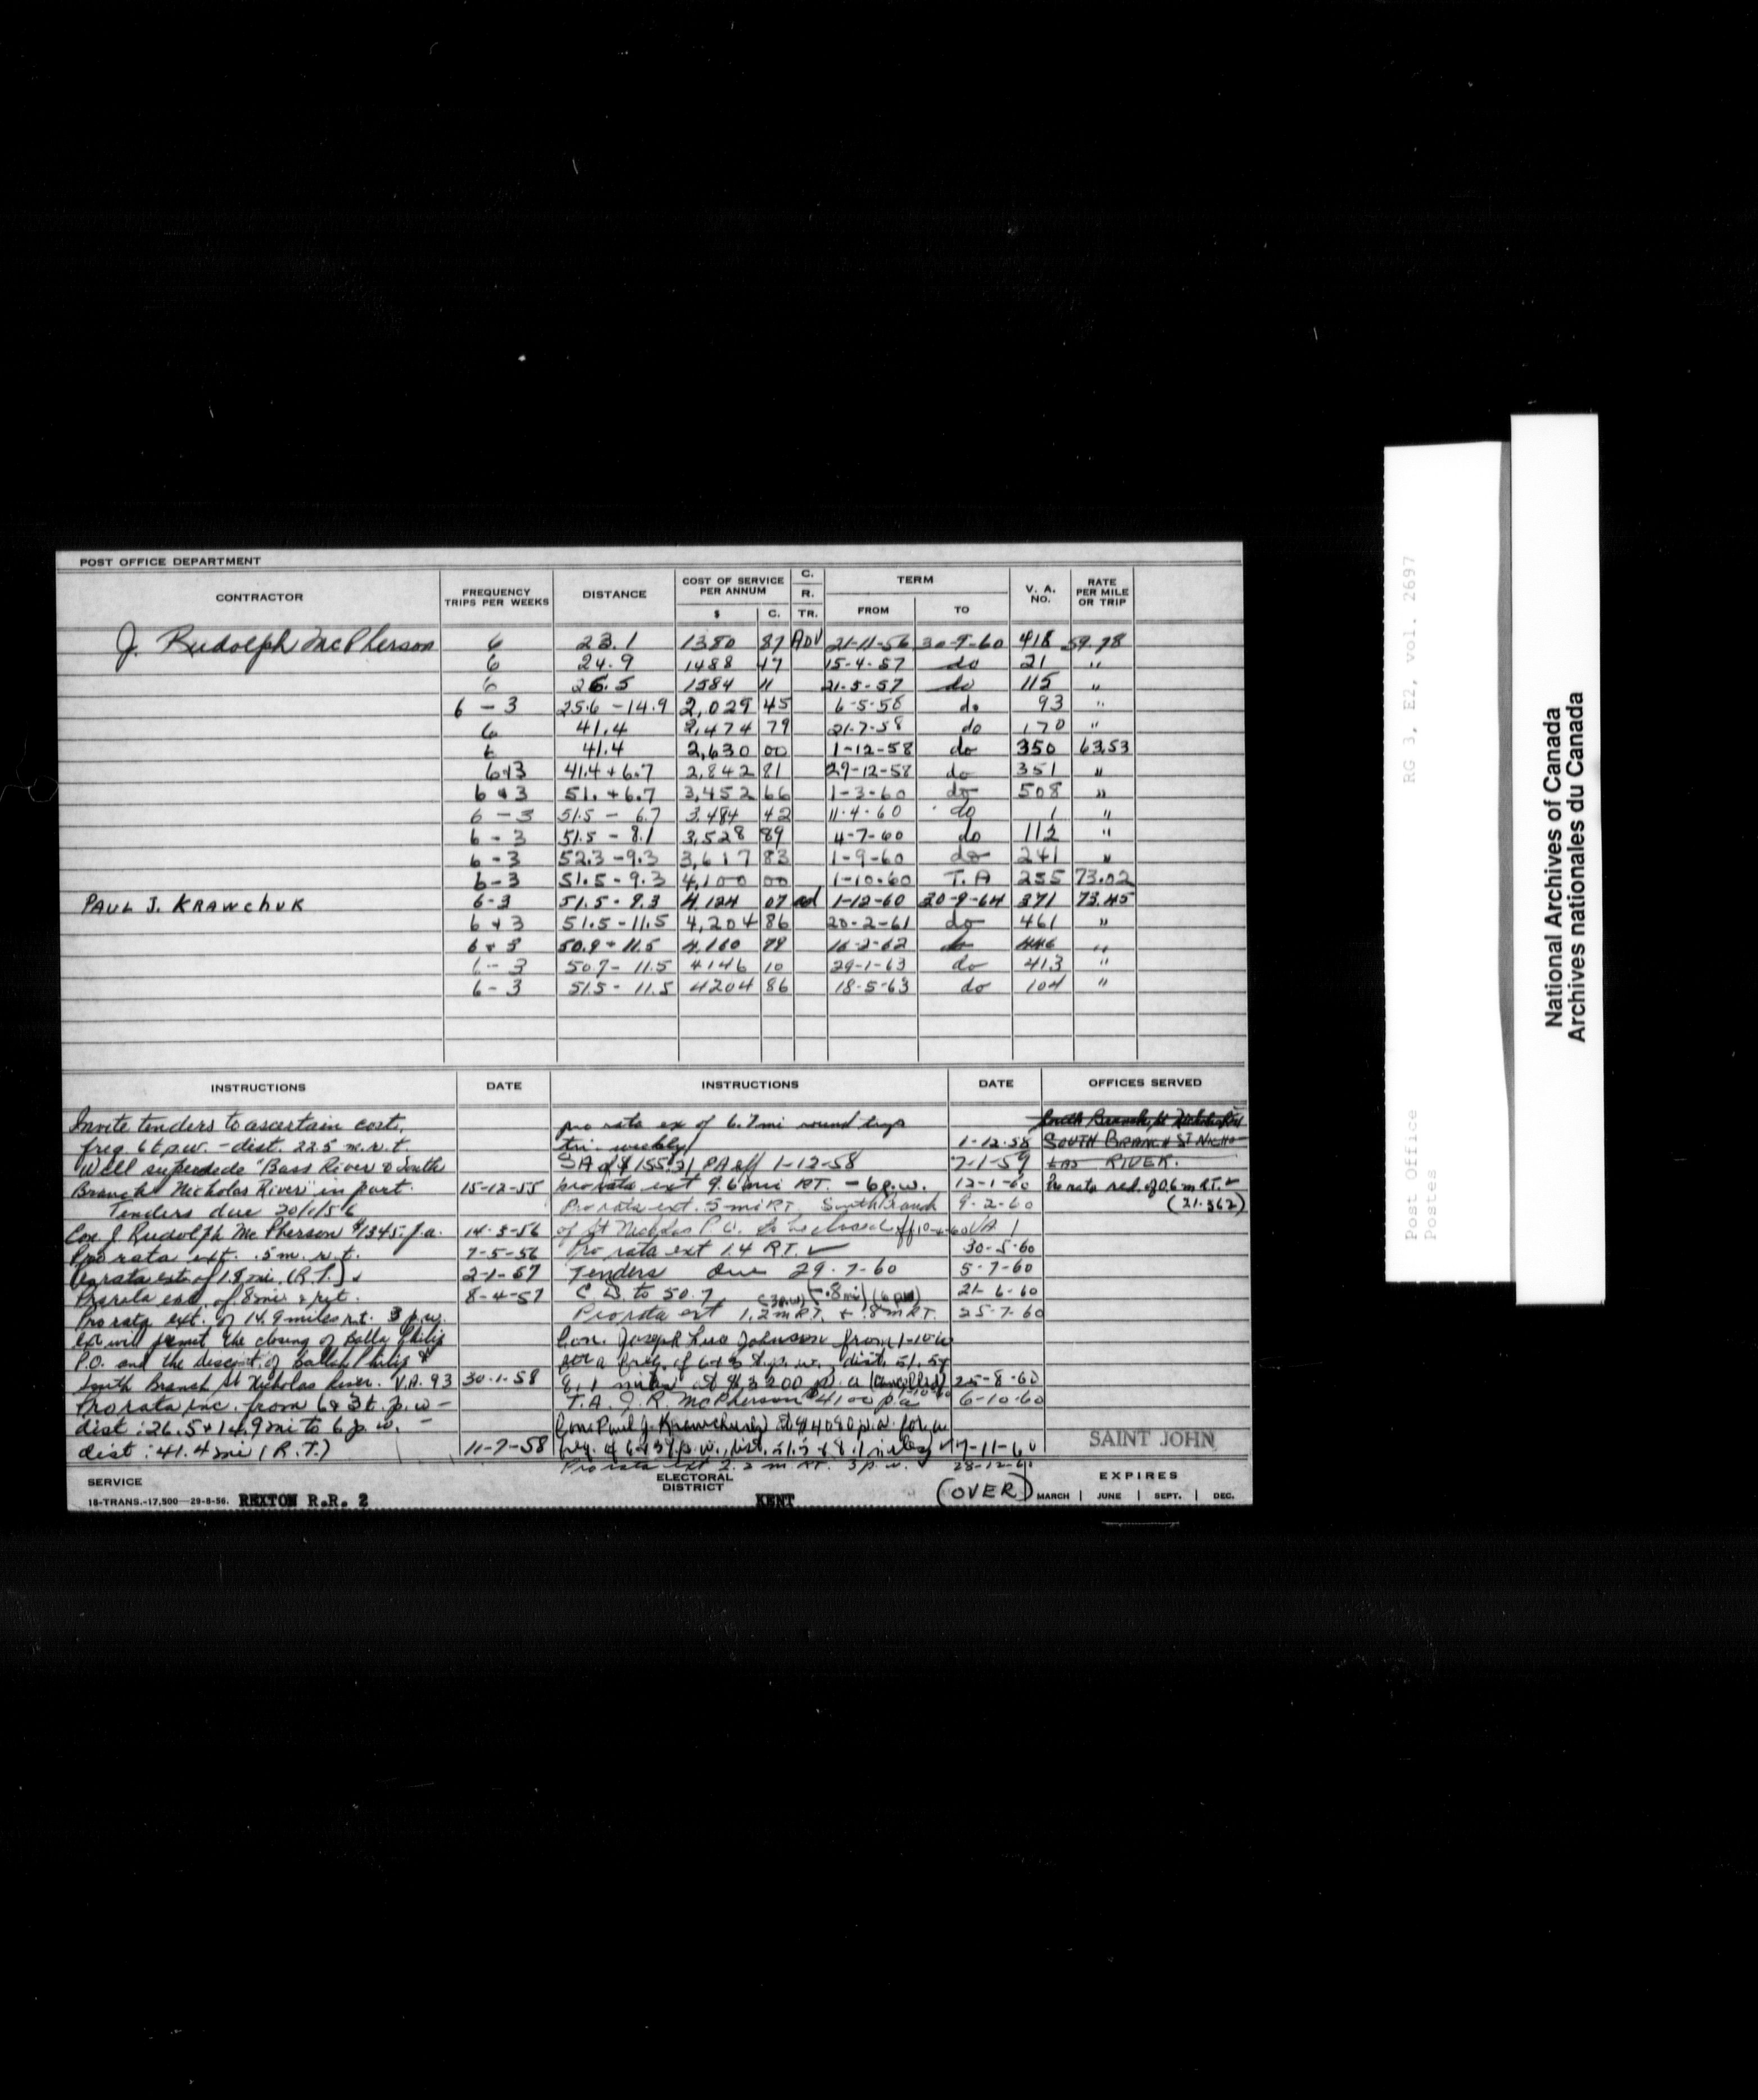 POST OFFICE DEPARTMENT
CONTRACTOR FREQUENCY TRIPS PER WEEKS DISTANCE COST OF SERVICE PER ANNUM $ C. C. R. TR. TERM FROM TO V. A. NO. RATE PER MILE OR TRIP
J. Rudolph McPherson 6 23.1 1380 87 ADV 21-11-56 30-9-60 418 59.78
6 24.9 1488 47 15-4-57 do 21 "
6 26.5 1584 11 21-5-57 do 115 "
6 - 3 25.6 - 14.9 2,029 45 6-5-58 do 93 "
6 41.4 2,474 79 21-7-58 do 170 "
6 41.4 2,630 00 1-12-58 do 350 63.53
6+3 41.4 + 6.7 2,842 81 29-12-58 do 351 "
6 & 3 51. + 6.7 3,452 66 1-3-60 do 508 "
6 - 3 51.5 - 6.7 3,484 42 11-4-60 do 1 "
6 - 3 51.5 - 8.1 3,528 89 4-7-60 do 112 "
6 - 3 52.3 - 9.3 3,617 83 1-9-60 do 241 "
6-3 51.5 - 9.3 4,100 00 1-10-60 T.A 255 73.02
PAUL J. KRAWCHUK 6-3 51.5 - 9.3 4,124 07 ad 1-12-60 30-9-64 371 73.45
6 + 3 51.5 - 11.5 4,204 86 20-2-61 do 461 "
6 + 3 50.9 + 11.5 4,160 79 16-2-62 do 446 "
6 - 3 50.7 - 11.5 4146 10 29-1-63 do 413 "
6 - 3 51.5 - 11.5 4204 86 18-5-63 do 104 "
INSTRUCTIONS DATE INSTRUCTIONS DATE OFFICES SERVED
Invite tenders to ascertain cost,
freq 6 t.p.w. - dist. 22.5 m.r.t.
Will supersede "Bass River & South
Branch Nicholas River" in part. 15-12-55
Tenders due 20/1/56
Con. J. Rudolph McPherson $1345. p.a. 14-3-56
Pro rata ext. .5 m. r.t. 7-5-56
Pro rata ext. of 1.8 mi. (R.T.) 2-1-57
Pro rata ext. of 8 mi. r.t. 8-4-57
Pro rata ext. of 14.9 miles r.t. 3 p.w.
ext will permit the closing of Balla Philip
P.O. and the discont. of Balla Philip &
South Branch St Nicholas River. V.A. 93 30-1-58
Pro rata inc. from 6 & 3 t. p.w -
dist: 26.5 + 14.9 mi to 6 p.w. -
dist: 41.4 mi (R.T.) 11-7-58
pro rata ex of 6.7 mi round trip
tri-weekly 1-12-58
SA of $155.21 PA eff 1-12-58 7-1-59
pro rata ext 9.6 mi RT. - 6 p.w. 12-1-60
Pro rata ext .5 mi RT, South Branch 9-2-60
of St Nicholas P.O. to be closed eff VA 1
Pro rata ext 1.4 RT. ✓ 30-5-60
Tenders due 29-7-60 5-7-60
C.D. to 50.7 (-.8 mi) (6 pw) 21-6-60
Pro rata ext 1.2 m RT. (3 p.w) + .8 m RT. 25-7-60
Con. Joseph Leo Johnson from 1-10-60
for a freq. of 6 & 3 t.p.w., dist. 51.5 &
8.1 miles at $3200 p.a (Cancelled) 25-8-60
T.A. J.R. McPherson $4100 p.a 6-10-60
Con. Paul J. Krawchuk at $4080 p.a. for a
freq. of 6 & 3 t.p.w., dist. 51.5 & 8.1 miles 17-11-60
Pro rata ext 2.2 m RT. 3 p.w. 28-12-60
SOUTH BRANCH ST NICHO-
LAS RIVER.
Pro rata red. of 0.6 m R.T. ✓
(21.562)
SAINT JOHN
SERVICE ELECTORAL DISTRICT (OVER) EXPIRES
18-TRANS.-17,500—29-8-56. REXTON R.R. 2 KENT MARCH | JUNE | SEPT. | DEC.
RG 3, E2, vol. 2697
Post Office
Postes
National Archives of Canada
Archives nationales du Canada